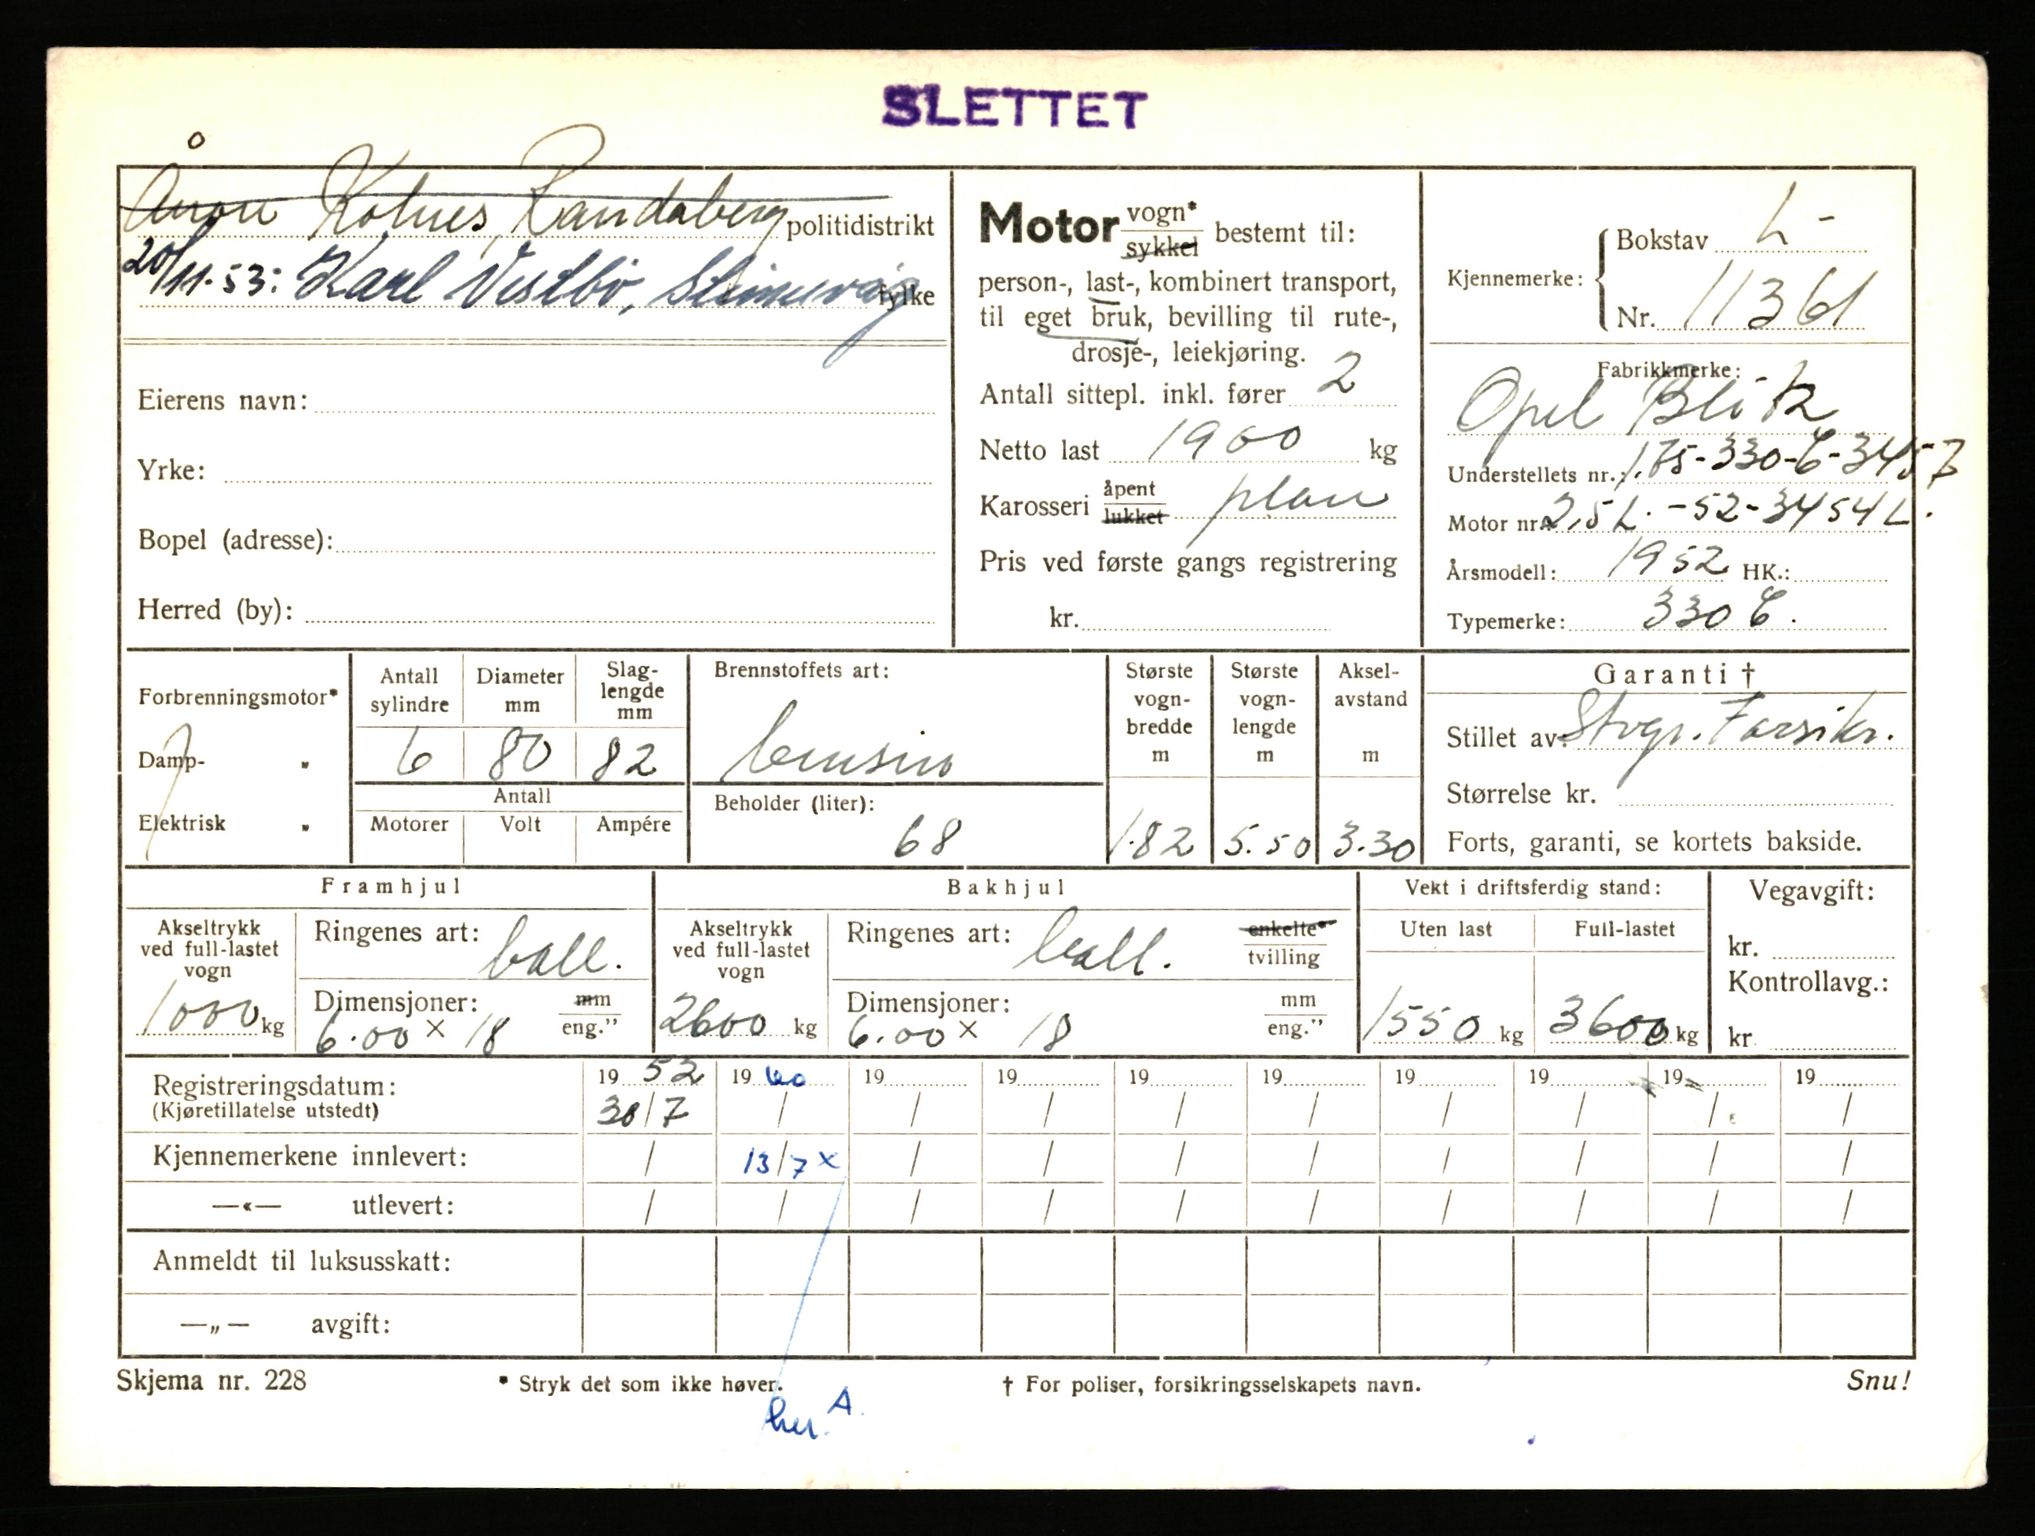 SLETTET
Åron Kolnes, Randaberg politidistrikt
20/11-53: Karl Vestbø, fylke
Eierens navn:
Yrke:
Bopel (adresse):
Herred (by):
Motor vogn* sykkel bestemt til:
person-, last-, kombinert transport,
til eget bruk, bevilling til rute-,
drosje-, leiekjøring.
Antall sittepl. inkl. fører 2
Netto last 1900 kg
Karosseri åpent lukket plan
Pris ved første gangs registrering
kr.
Kjennemerke: Bokstav L-
Nr. 11361
Fabrikkmerke:
Opel Blitz
Understellets nr.: 1.75-330-C-3457
Motor nr. 2,5 L. -52-3454 L.
Årsmodell: 1952 HK.:
Typemerke: 330 C.
Forbrenningsmotor*
Damp- „
Elektrisk „
Antall sylindre 6
Diameter mm 80
Slaglengde mm 82
Antall
Motorer Volt Ampére
Brennstoffets art:
bensin
Beholder (liter):
68
Største vognbredde m 1.82
Største vognlengde m 5.50
Akselavstand m 3.30
Garanti †
Stillet av: Stvgr. Forsikr.
Størrelse kr.
Forts, garanti, se kortets bakside.
Framhjul
Akseltrykk ved full-lastet vogn 1000 kg
Ringenes art: ball.
Dimensjoner: mm eng."
6.00 x 18
Bakhjul
Akseltrykk ved full-lastet vogn 2600 kg
Ringenes art: ball. enkelte* tvilling
Dimensjoner: mm eng."
6.00 x 18
Vekt i driftsferdig stand:
Uten last Full-lastet
1550 kg 3600 kg
Vegavgift:
kr.
Kontrollavg.:
kr.
Registreringsdatum: 19 52 19 60 19 19 19 19 19 19 19 19
(Kjøretillatelse utstedt) 30/7 / / / / / / / / /
Kjennemerkene innlevert: / 13/7 x / / / / / / / /
—«— utlevert: / / / / / / / / / /
Anmeldt til luksusskatt:
—„— avgift:
Skjema nr. 228 * Stryk det som ikke høver. † For poliser, forsikringsselskapets navn. Snu!
her. A.